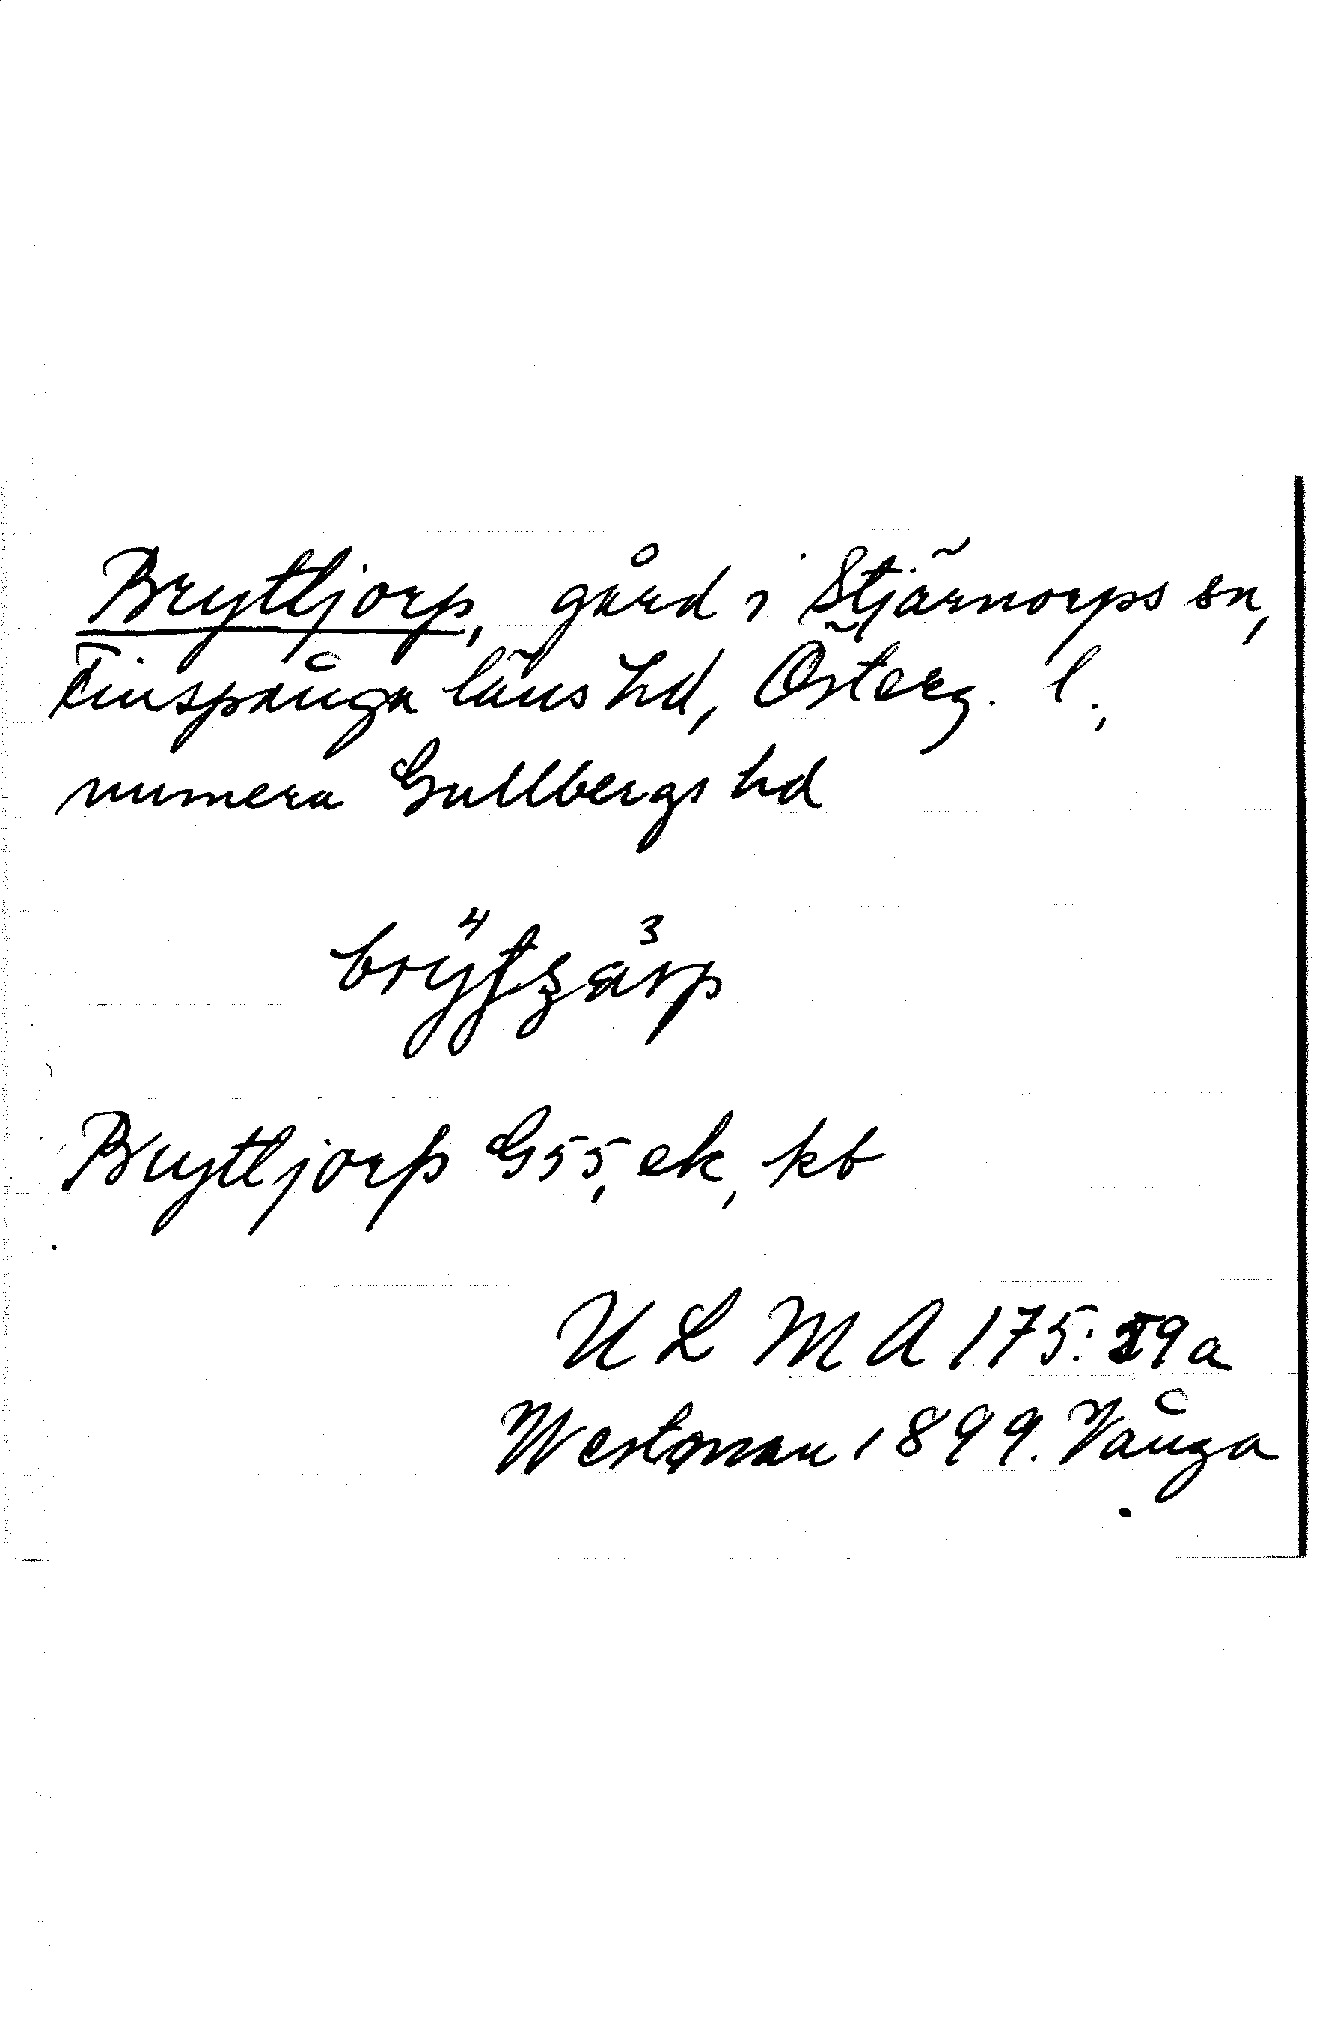 Bryttjorp, gård i Stjärnorps sn,
Finspånga läns hd, Österg. l.,
numera Gullbergs hd
Bryttjorp G55, ek, kb
ULMA 175:59a
Westman 1899. Vånga